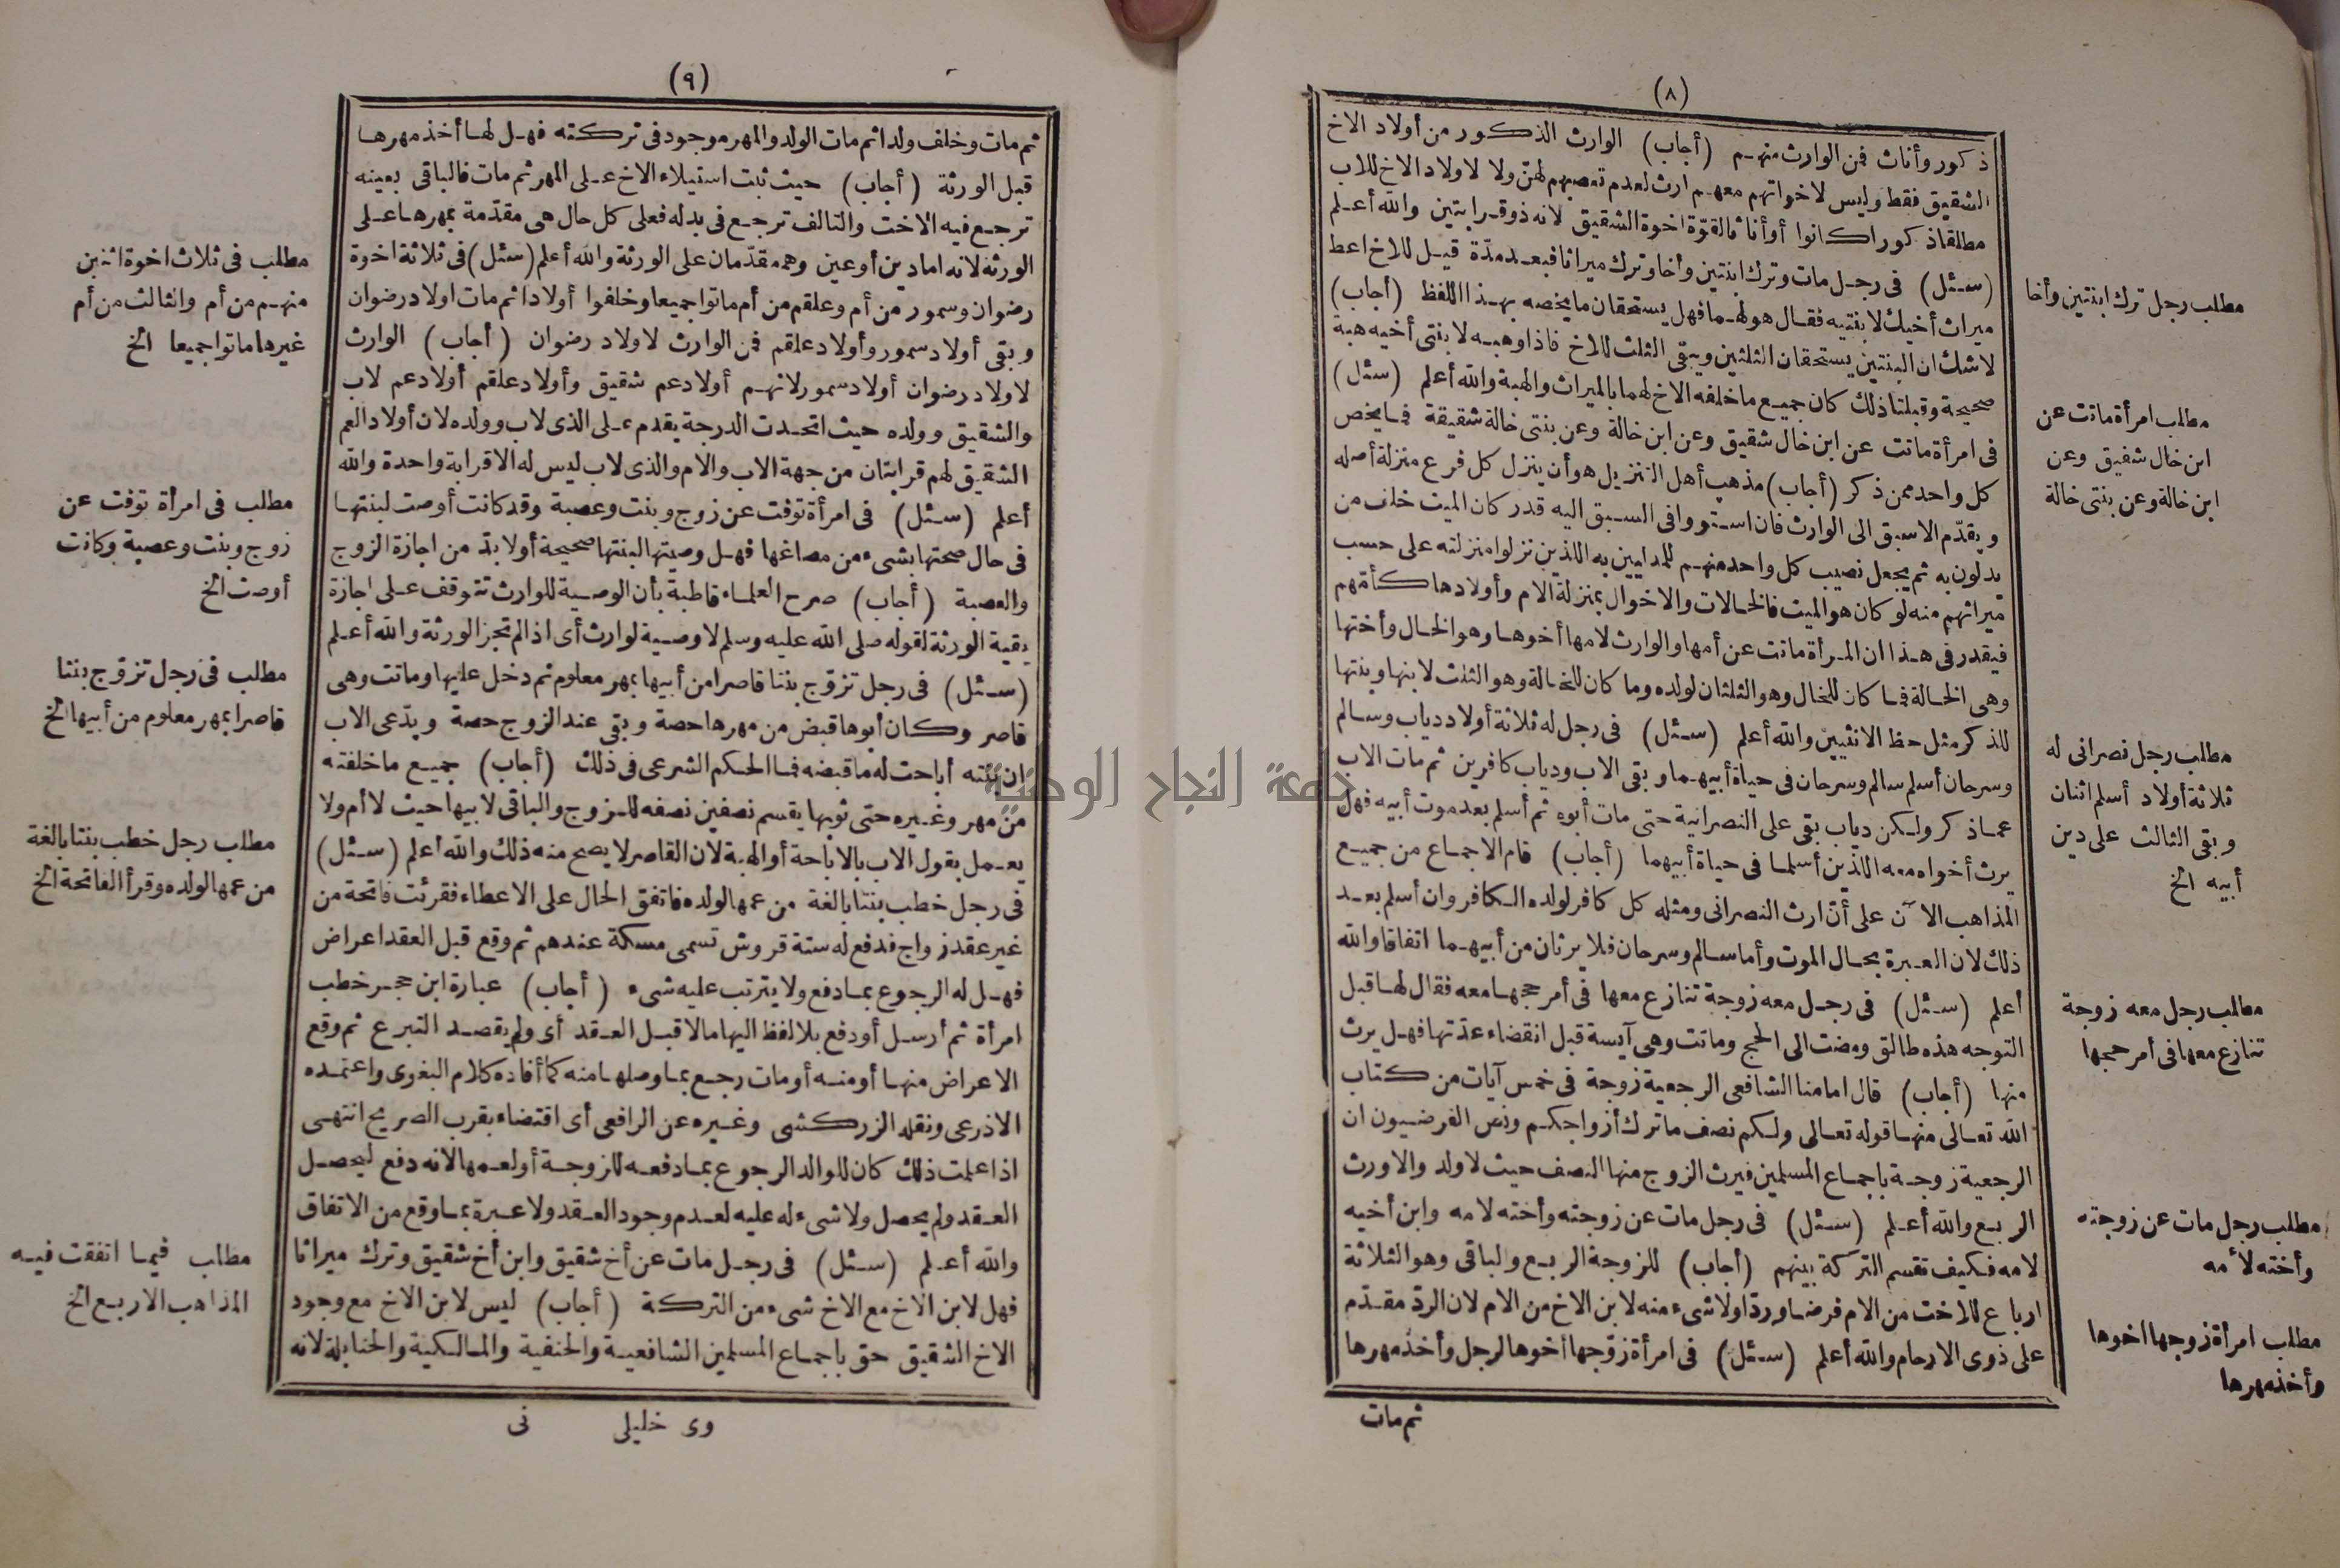 (٨)
ذكور وأناث فمن الوارث منهم (أجاب) الوارث الذكور من أولاد الاخ
الشقيق فقط وليس لاخواتهم معهم ارث لعدم تعصيبهم لهنّ ولا لاولاد الاخ للاب
مطلقا ذكورا كانوا أو أناثا لقوّة اخوة الشقيق لانه ذو قرابتين والله أعلم
(سئل) فى رجل مات وترك ابنتين وأخا وترك ميراثا فبعد مدّة قيل للاخ اعط
ميراث أخيك لابنتيه فقال هو لهما فهل يستحقان ما يخصه بهذا اللفظ (أجاب)
لا شك ان البنتين يستحقان الثلثين ويبقى الثلث للاخ فاذا وهبه لابنتى أخيه هبة
صحيحة وقبلتا ذلك كان جميع ما خلفه الاخ لهما بالميراث والهبة والله أعلم (سئل)
فى امرأة ماتت عن ابن خال شقيق وعن ابن خالة وعن بنتى خالة شقيقة فما يخص
كل واحد ممن ذكر (أجاب) مذهب أهل التنزيل هو أن ينزل كل فرع منزلة أصله
ويقدّم الاسبق الى الوارث فان استووا فى السبق اليه قدر كان الميت خلف من
يدلون به ثم يجعل نصيب كل واحد منهم للمدليين به الذين نزلوا منزلته على حسب
ميراثهم منه لو كان هو الميت فالخالات والاخوال بمنزلة الام وأولادها كأمّهم
فيقدر فى هذا ان المرأة ماتت عن أمها والوارث لامها أخوها وهو الخال وأختها
وهى الخالة فما كان للخال وهو الثلثان لولده وما كان للخالة وهو الثلث لابنها وبنتها
للذكر مثل حظ الانثيين والله أعلم (سئل) فى رجل له ثلاثة أولاد دياب وسالم
وسرحان أسلم سالم وسرحان فى حياة أبيهما وبقى الاب ودياب كافرين ثم مات الاب
عما ذكر ولكن دياب بقى على النصرانية حتى مات أبوه ثم أسلم بعد موت أبيه فهل
يرث أخواه معه اللذين أسلما فى حياة أبيهما (أجاب) قام الاجماع من جميع
المذاهب الآن على أنّ ارث النصرانى ومثله كل كافر لولده الكافر وان أسلم بعد
ذلك لان العبرة بحال الموت وأما سالم وسرحان فلا يرثان من أبيهما اتفاقا والله
أعلم (سئل) فى رجل معه زوجة تنازع معها فى أمر حجها معه فقال لها قبل
التوجه هذه طالق ومضت الى الحج وماتت وهى آيسة قبل انقضاء عدّتها فهل يرث
منها (أجاب) قال امامنا الشافعى الرجعية زوجة فى خمس آيات من كتاب
الله تعالى منها قوله تعالى ولكم نصف ما ترك أزواجكم ونص الفرضيون ان
الرجعية زوجة باجماع المسلمين فيرث الزوج منها النصف حيث لا ولد والا ورث
الربع والله أعلم (سئل) فى رجل مات عن زوجته وأخته لامه وابن أخيه
لامه فكيف تقسم التركة بينهم (أجاب) للزوجة الربع والباقى وهو الثلاثة
ارباع للاخت من الام فرضا وردّا ولا شىء منه لابن الاخ من الام لان الردّ مقدّم
على ذوى الارحام والله أعلم (سئل) فى امرأة زوّجها أخوها لرجل وأخذ مهرها
ثم مات
مطلب رجل ترك ابنتين وأخا
مطلب امرأة ماتت عن
ابن خال شقيق وعن
ابن خالة وعن بنتى خالة
مطلب رجل نصرانى له
ثلاثة أولاد أسلم اثنان
وبقى الثالث على دين
أبيه الخ
مطلب رجل معه زوجة
تنازع معها فى أمر حجها
مطلب رجل مات عن زوجته
وأخته لأمه
مطلب امرأة زوجها اخوها
وأخذ مهرها
(٩)
ثم مات وخلف ولدا ثم مات الولد والمهر موجود فى تركته فهل لها أخذ مهرها
قبل الورثة (أجاب) حيث ثبت استيلاء الاخ على المهر ثم مات فالباقى بعينه
ترجع فيه الاخت والتالف ترجع فى بدله فعلى كل حال هى مقدّمة بمهرها على
الورثة لانه اما دين أو عين وهما مقدّمان على الورثة والله أعلم (سئل) فى ثلاثة اخوة
رضوان وسمور من أم وعلقم من أم ماتوا جميعا وخلفوا أولادا ثم مات اولاد رضوان
وبقى أولاد سمور وأولاد علقم فمن الوارث لاولاد رضوان (أجاب) الوارث
لاولاد رضوان أولاد سمور لانهم أولاد عم شقيق وأولاد علقم أولاد عم لاب
والشقيق وولده حيث اتحدت الدرجة يقدم على الذى لاب وولده لان أولاد العم
الشقيق لهم قرابتان من جهة الاب والام والذى لاب ليس له الا قرابة واحدة والله
أعلم (سئل) فى امرأة توفت عن زوج وبنت وعصبة وقد كانت أوصت لبنتها
فى حال صحتها بشىء من مصاغها فهل وصيتها لبنتها صحيحة أو لا بدّ من اجازة الزوج
والعصبة (أجاب) صرح العلماء قاطبة بأن الوصية للوارث تتوقف على اجازة
بقية الورثة لقوله صلى الله عليه وسلم لا وصية لوارث أى اذا لم تجز الورثة والله أعلم
(سئل) فى رجل تزوّج بنتا قاصرا من أبيها بمهر معلوم ثم دخل عليها وماتت وهى
قاصر وكان أبوها قبض من مهرها حصة وبقى عند الزوج حصة ويدّعى الاب
ان بنته أباحت له ما قبضه فما الحكم الشرعى فى ذلك (أجاب) جميع ما خلفته
من مهر وغيره حتى ثوبها يقسم نصفين نصفه للزوج والباقى لابيها حيث لا أم ولا
يعمل بقول الاب بالاباحة أو الهبة لان القاصر لا يصح منه ذلك والله أعلم (سئل)
فى رجل خطب بنتا بالغة من عمها لولده فاتفق الحال على الاعطاء فقرئت فاتحة من
غير عقد زواج فدفع له ستة قروش تسمى مسكة عندهم ثم وقع قبل العقد اعراض
فهل له الرجوع بما دفع ولا يترتب عليه شىء (أجاب) عبارة ابن حجر خطب
امرأة ثم أرسل أو دفع بلا لفظ اليها مالا قبل العقد أى ولم يقصد التبرع ثم وقع
الاعراض منها أو منه أو مات رجع بما وصلها منه كما أفاده كلام البغوى واعتمده
الاذرعى ونقله الزركشى وغيره عن الرافعى أى اقتضاء بقرب الصريح انتهى
اذا علمت ذلك كان للوالد الرجوع بما دفعه للزوجة أو لعمها لانه دفع ليحصل
العقد ولم يحصل ولا شىء له عليه لعدم وجود العقد ولا عبرة بما وقع من الاتفاق
والله أعلم (سئل) فى رجل مات عن أخ شقيق وابن أخ شقيق وترك ميراثا
فهل لابن الاخ مع الاخ شىء من التركة (أجاب) ليس لابن الاخ مع وجود
الاخ الشقيق حق باجماع المسلمين الشافعية والحنفية والمالكية والحنابلة لانه
وى خليلى نى
مطلب فى ثلاث اخوة اثنين
منهم من أم والثالث من أم
غيرها ماتوا جميعا الخ
مطلب فى امرأة توفت عن
زوج وبنت وعصبة وكانت
أوصت الخ
مطلب فى رجل تزوّج بنتا
قاصرا بمهر معلوم من أبيها الخ
مطلب رجل خطب بنتا بالغة
من عمها لولده وقرأ الفاتحة الخ
مطلب فيما اتفقت فيه
المذاهب الاربع الخ
جامعة النجاح الوطنية